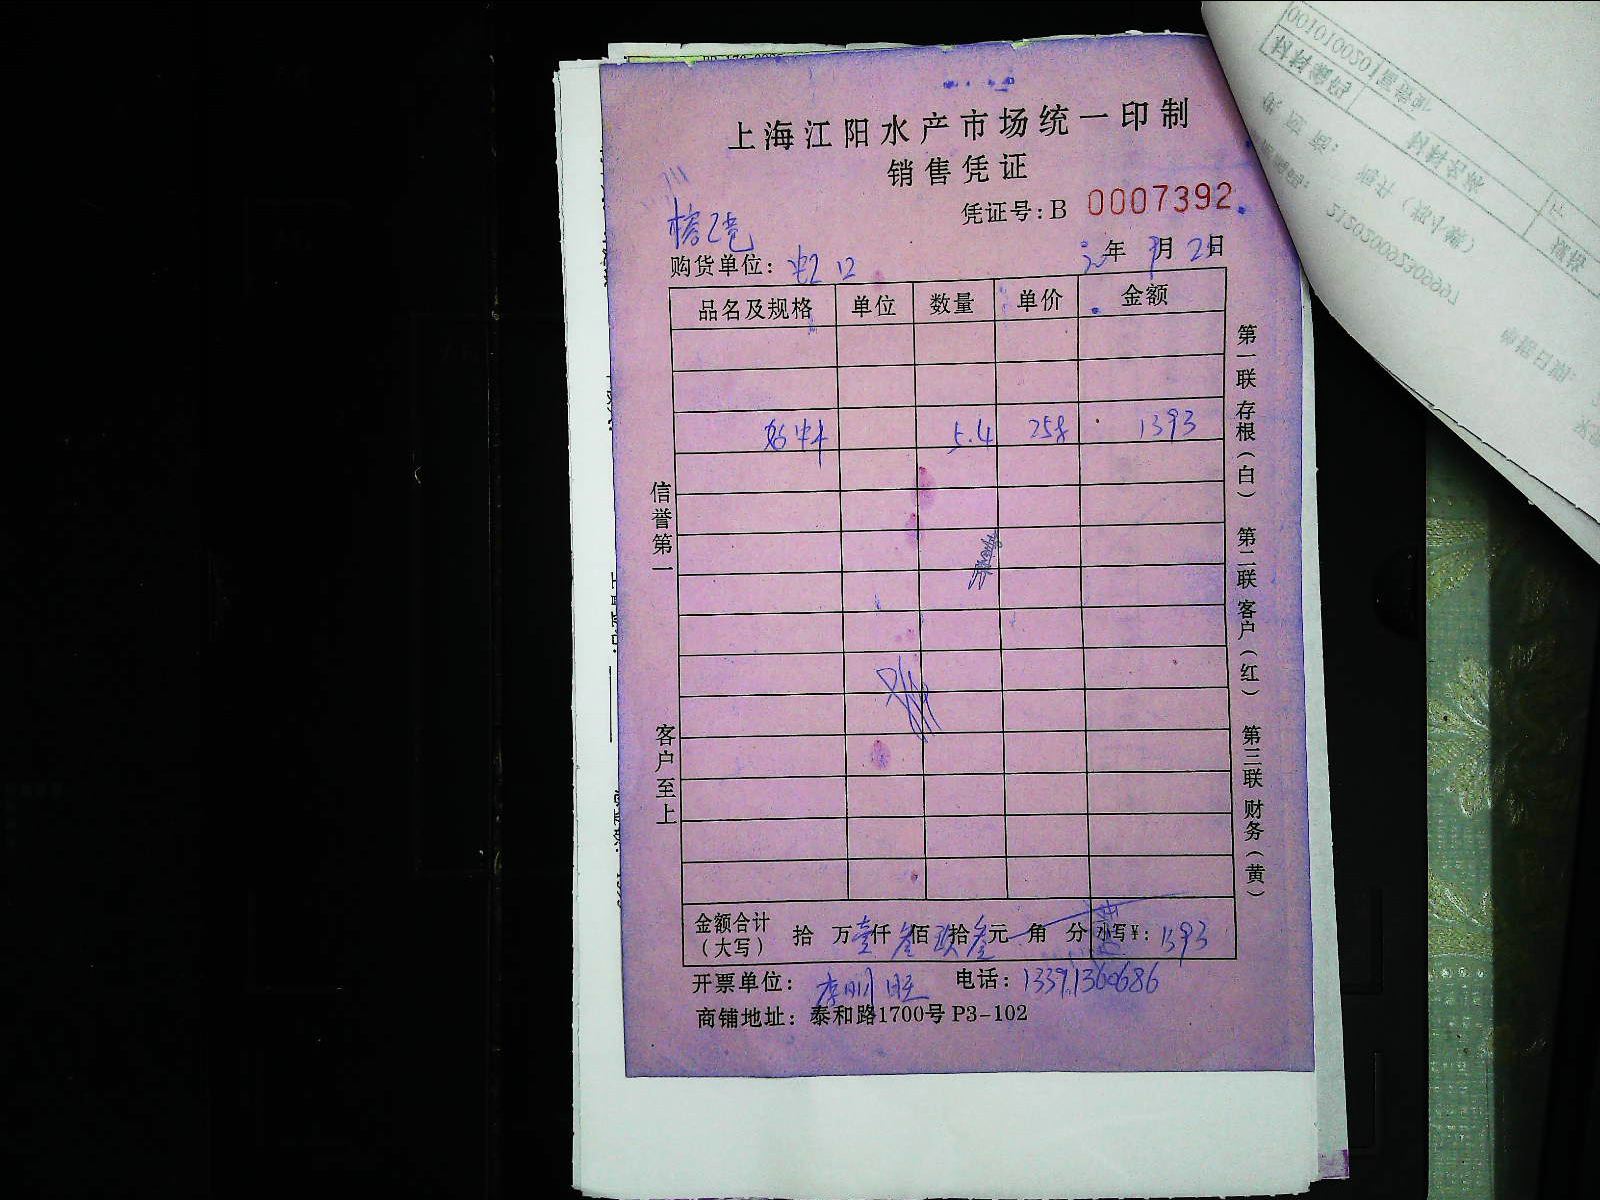 上海江阳水产市场统一印制
销售凭证
凭证号:B 0007392
购货单位: 虹口
年 月 2 日
品名及规格 单位 数量 单价 金额
5.4 258 1393
信誉第一
客户至上
第一联 存根(白) 第二联 客户(红) 第三联 财务(黄)
金额合计(大写) 拾 万壹仟叁佰玖拾叁元 角 分 小写¥: 1393
开票单位: 电话: 13391360686
商铺地址: 泰和路1700号 P3-102